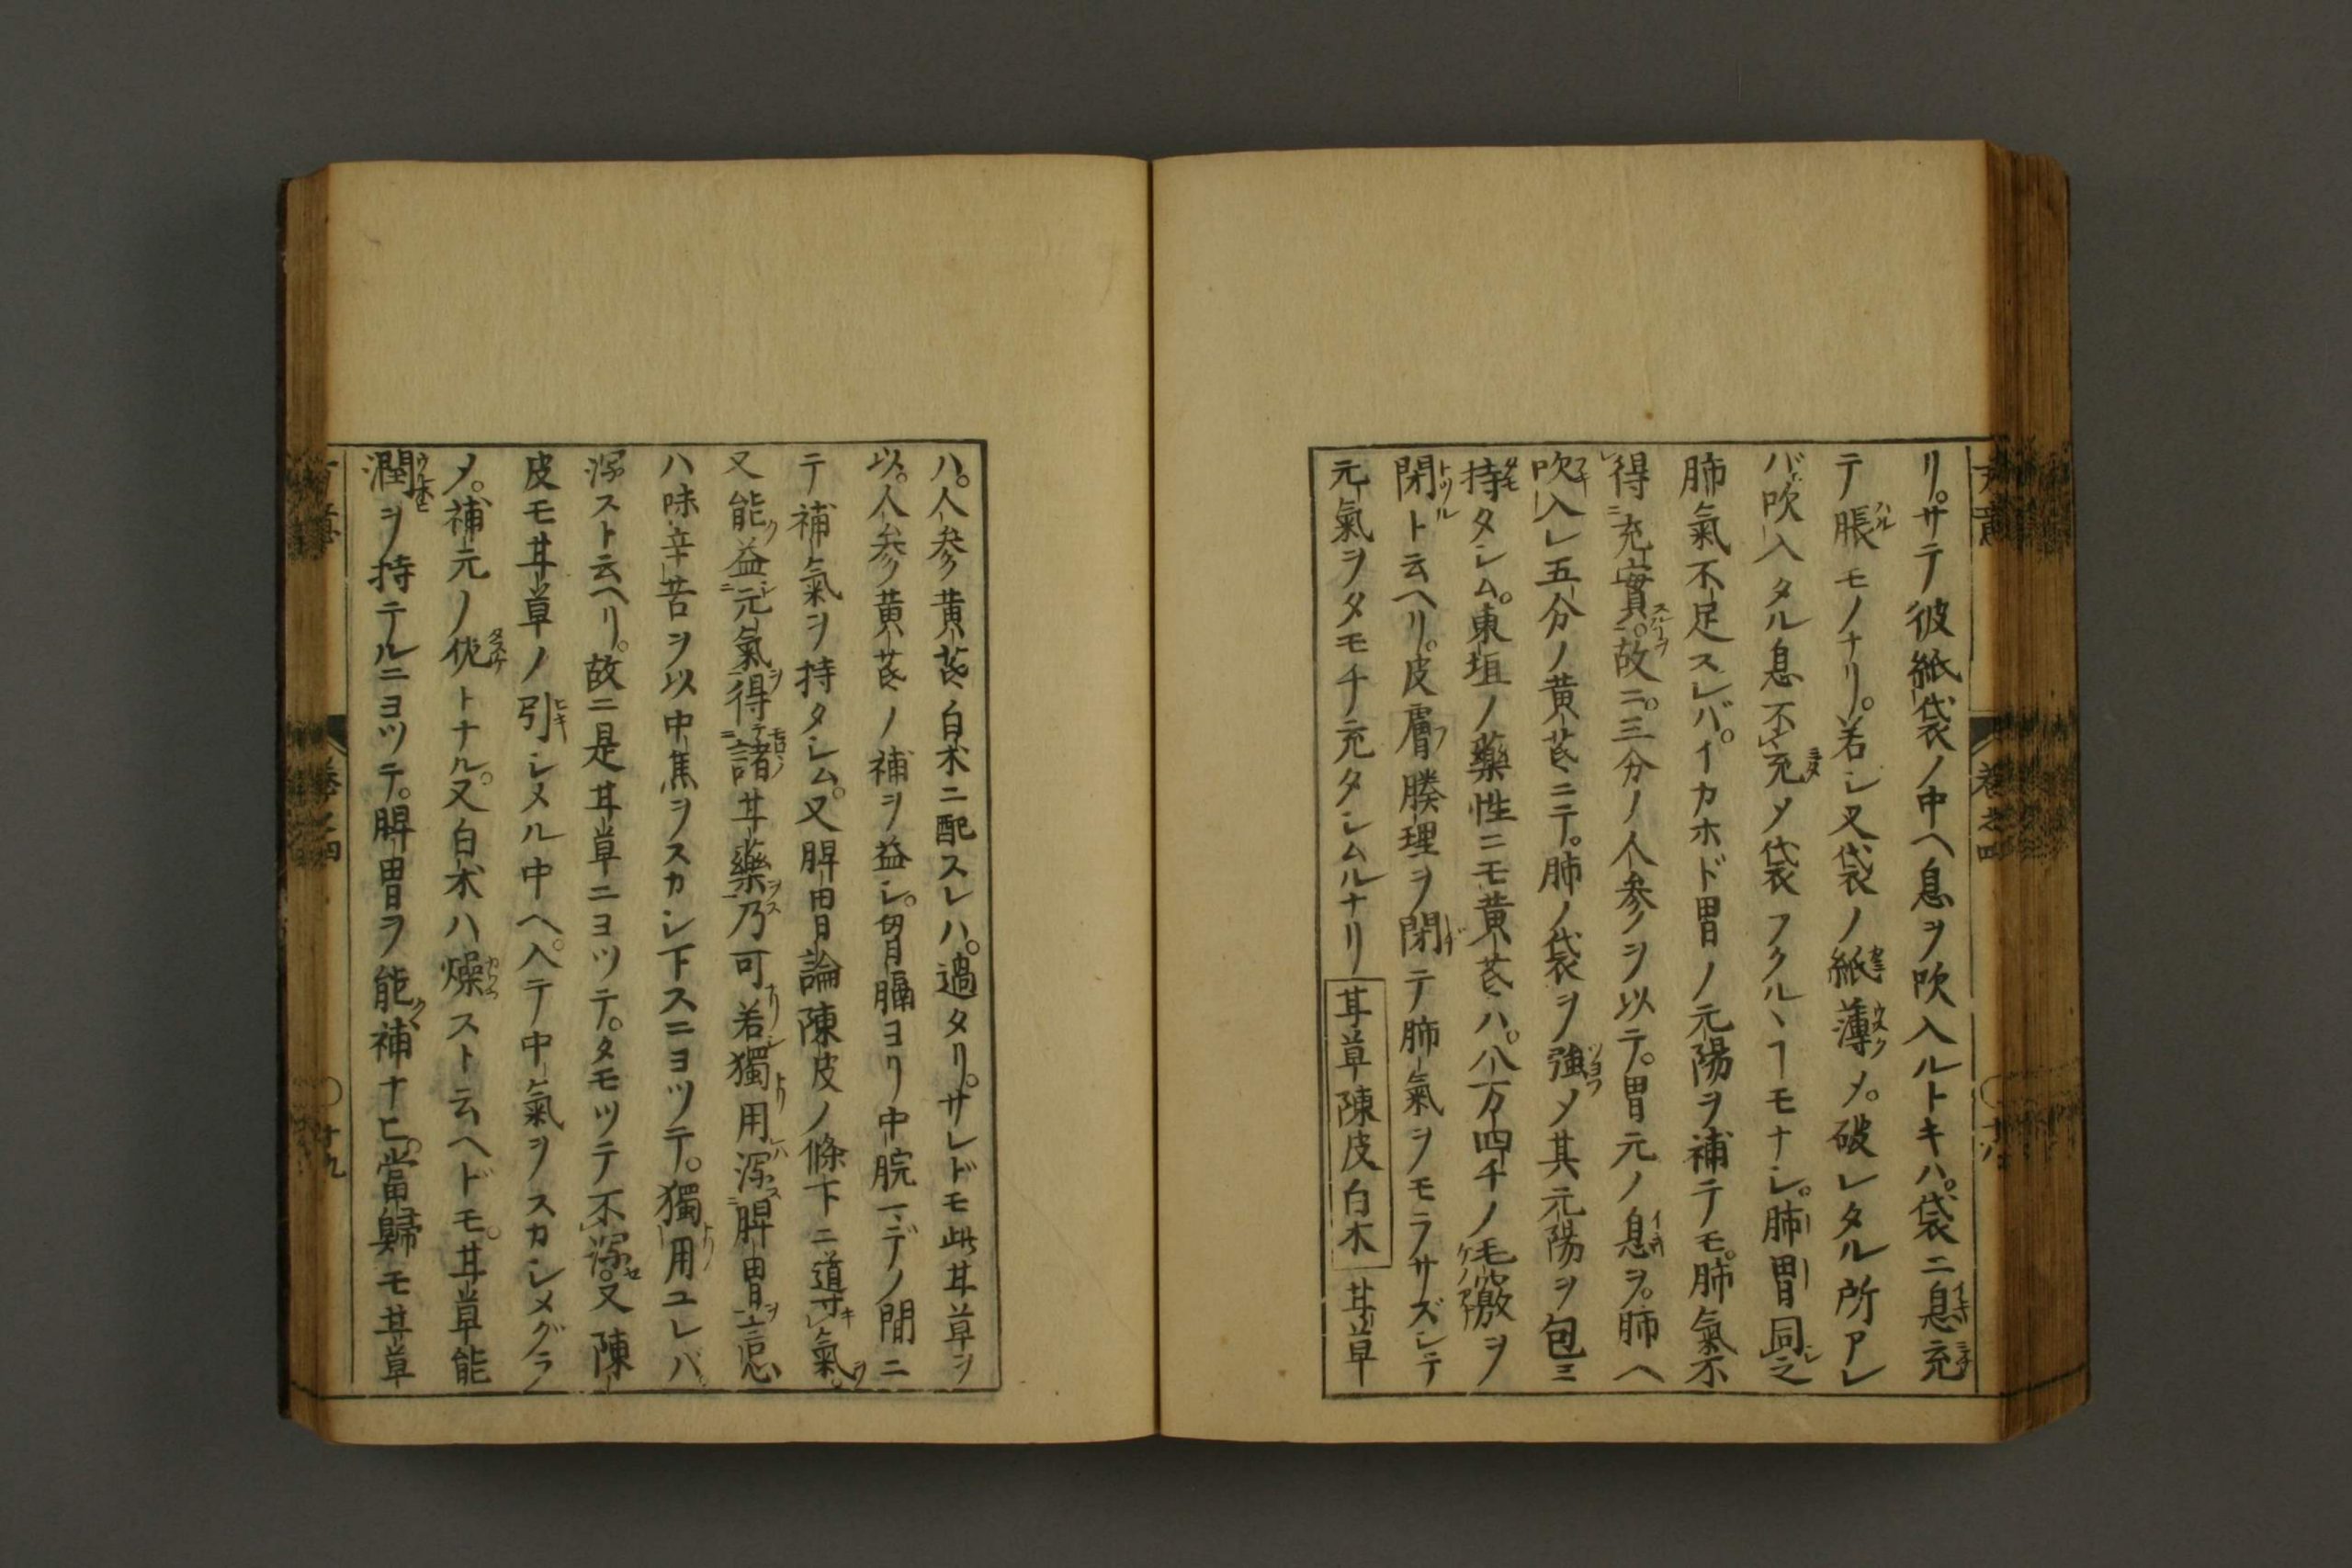 リ。サテ彼紙袋ノ中ヘ息ヲ吹入ルトキハ。袋ニ息充
テ脹モノナリ。若シ又袋ノ紙薄クメ。破レタル所アレ
バ吹入タル息不充メ袋フクルヽヿモナシ。肺胃同之
肺氣不足スレバ。イカホド胃ノ元陽ヲ補テモ。肺氣不
得充實。故ニ。三分ノ人参ヲ以テ。胃元ノ息ヲ。肺ヘ
吹入レ五分ノ黄芪ニテ。肺ノ袋ヲ強メ其元陽ヲ包ミ
持タシム。東垣ノ藥性ニモ黄芪ハ。八万四千ノ毛竅ヲ
閉ト云ヘリ。皮膚腠理ヲ閉テ肺氣ヲモラサズシテ
元氣ヲタモチ充タシムルナリ 甘草陳皮白朮 甘草
卷之四
十八
ハ。人参黄芪白朮ニ配スレハ。過タリ。サレドモ此甘草ヲ
以。人参黄芪ノ補ヲ益シ。胷膈ヨリ中脘マデノ間ニ
テ補氣ヲ持タシム。又脾胃論陳皮ノ條下ニ導氣
又能益元氣得諸甘藥乃可若獨用瀉脾胃云意
ハ味辛苦ヲ以中焦ヲスカシ下スニヨツテ。獨用ユレバ
瀉スト云ヘリ。故ニ是甘草ニヨツテ。タモツテ不瀉。又陳
皮モ甘草ノ引シメル中ヘ。入テ中氣ヲスカシメグラ
メ。補元ノ佐トナル。又白朮ハ燥スト云ヘドモ。甘草能
潤ヲ持テルニヨツテ。脾胃ヲ能補ナヒ。當歸モ甘草
卷之四
十九